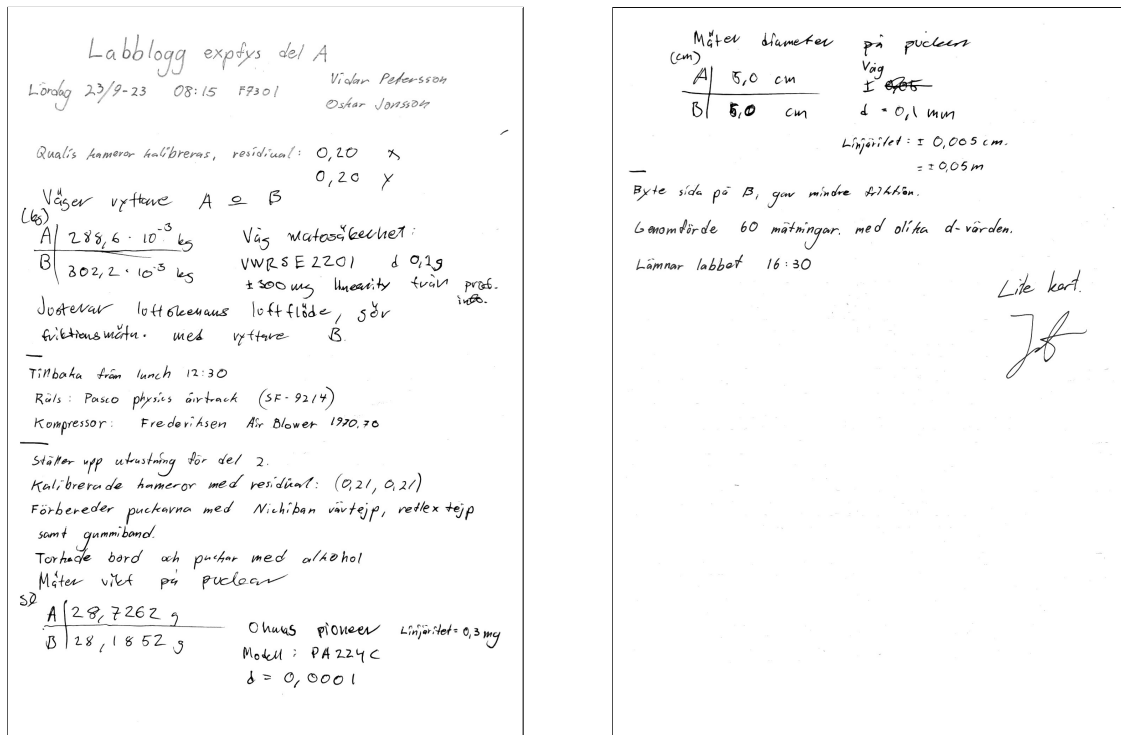 Labblogg expfys del A
Lördag 23/9-23 08:15 F9301
Vidar Petersson
Oskar Jonsson
Qualis kameror kalibreras, residual: 0,20 x
0,20 y
Väger ryttare A o B
(kg)
A 288,6 · 10⁻³ kg
B 302,2 · 10⁻³ kg
Våg mätosäkerhet:
VWR SE2201 d 0,1g
±300 mg linearity från prod. info.
Justerar luftskenans luftflöde, gör
friktionsmätn. med ryttare B.
Tillbaka från lunch 12:30
Räls: Pasco physics airtrack (SF-9214)
Kompressor: Frederiksen Air Blower 1970.70
Ställer upp utrustning för del 2.
Kalibrerade kameror med residual: (0,21, 0,21)
Förbereder puckarna med Nichiban vävtejp, reflex tejp
samt gummiband.
Torkade bord och puckar med alkohol
Mäter vikt på puckar
A 28,7262 g
B 28,1852 g
Ohaus pioneer Linjäritet = 0,3 mg
Modell: PA224C
d = 0,0001
Mäter diameter på puckar
(cm)
A 5,0 cm
B 5,0 cm
Våg
±
d = 0,1 mm
Linjäritet: ± 0,005 cm.
= ± 0,05 m
Byte sida på B, gav mindre friktion.
Genomförde 60 mätningar. med olika d-värden.
Lämnar labbet 16:30
Lite kort.